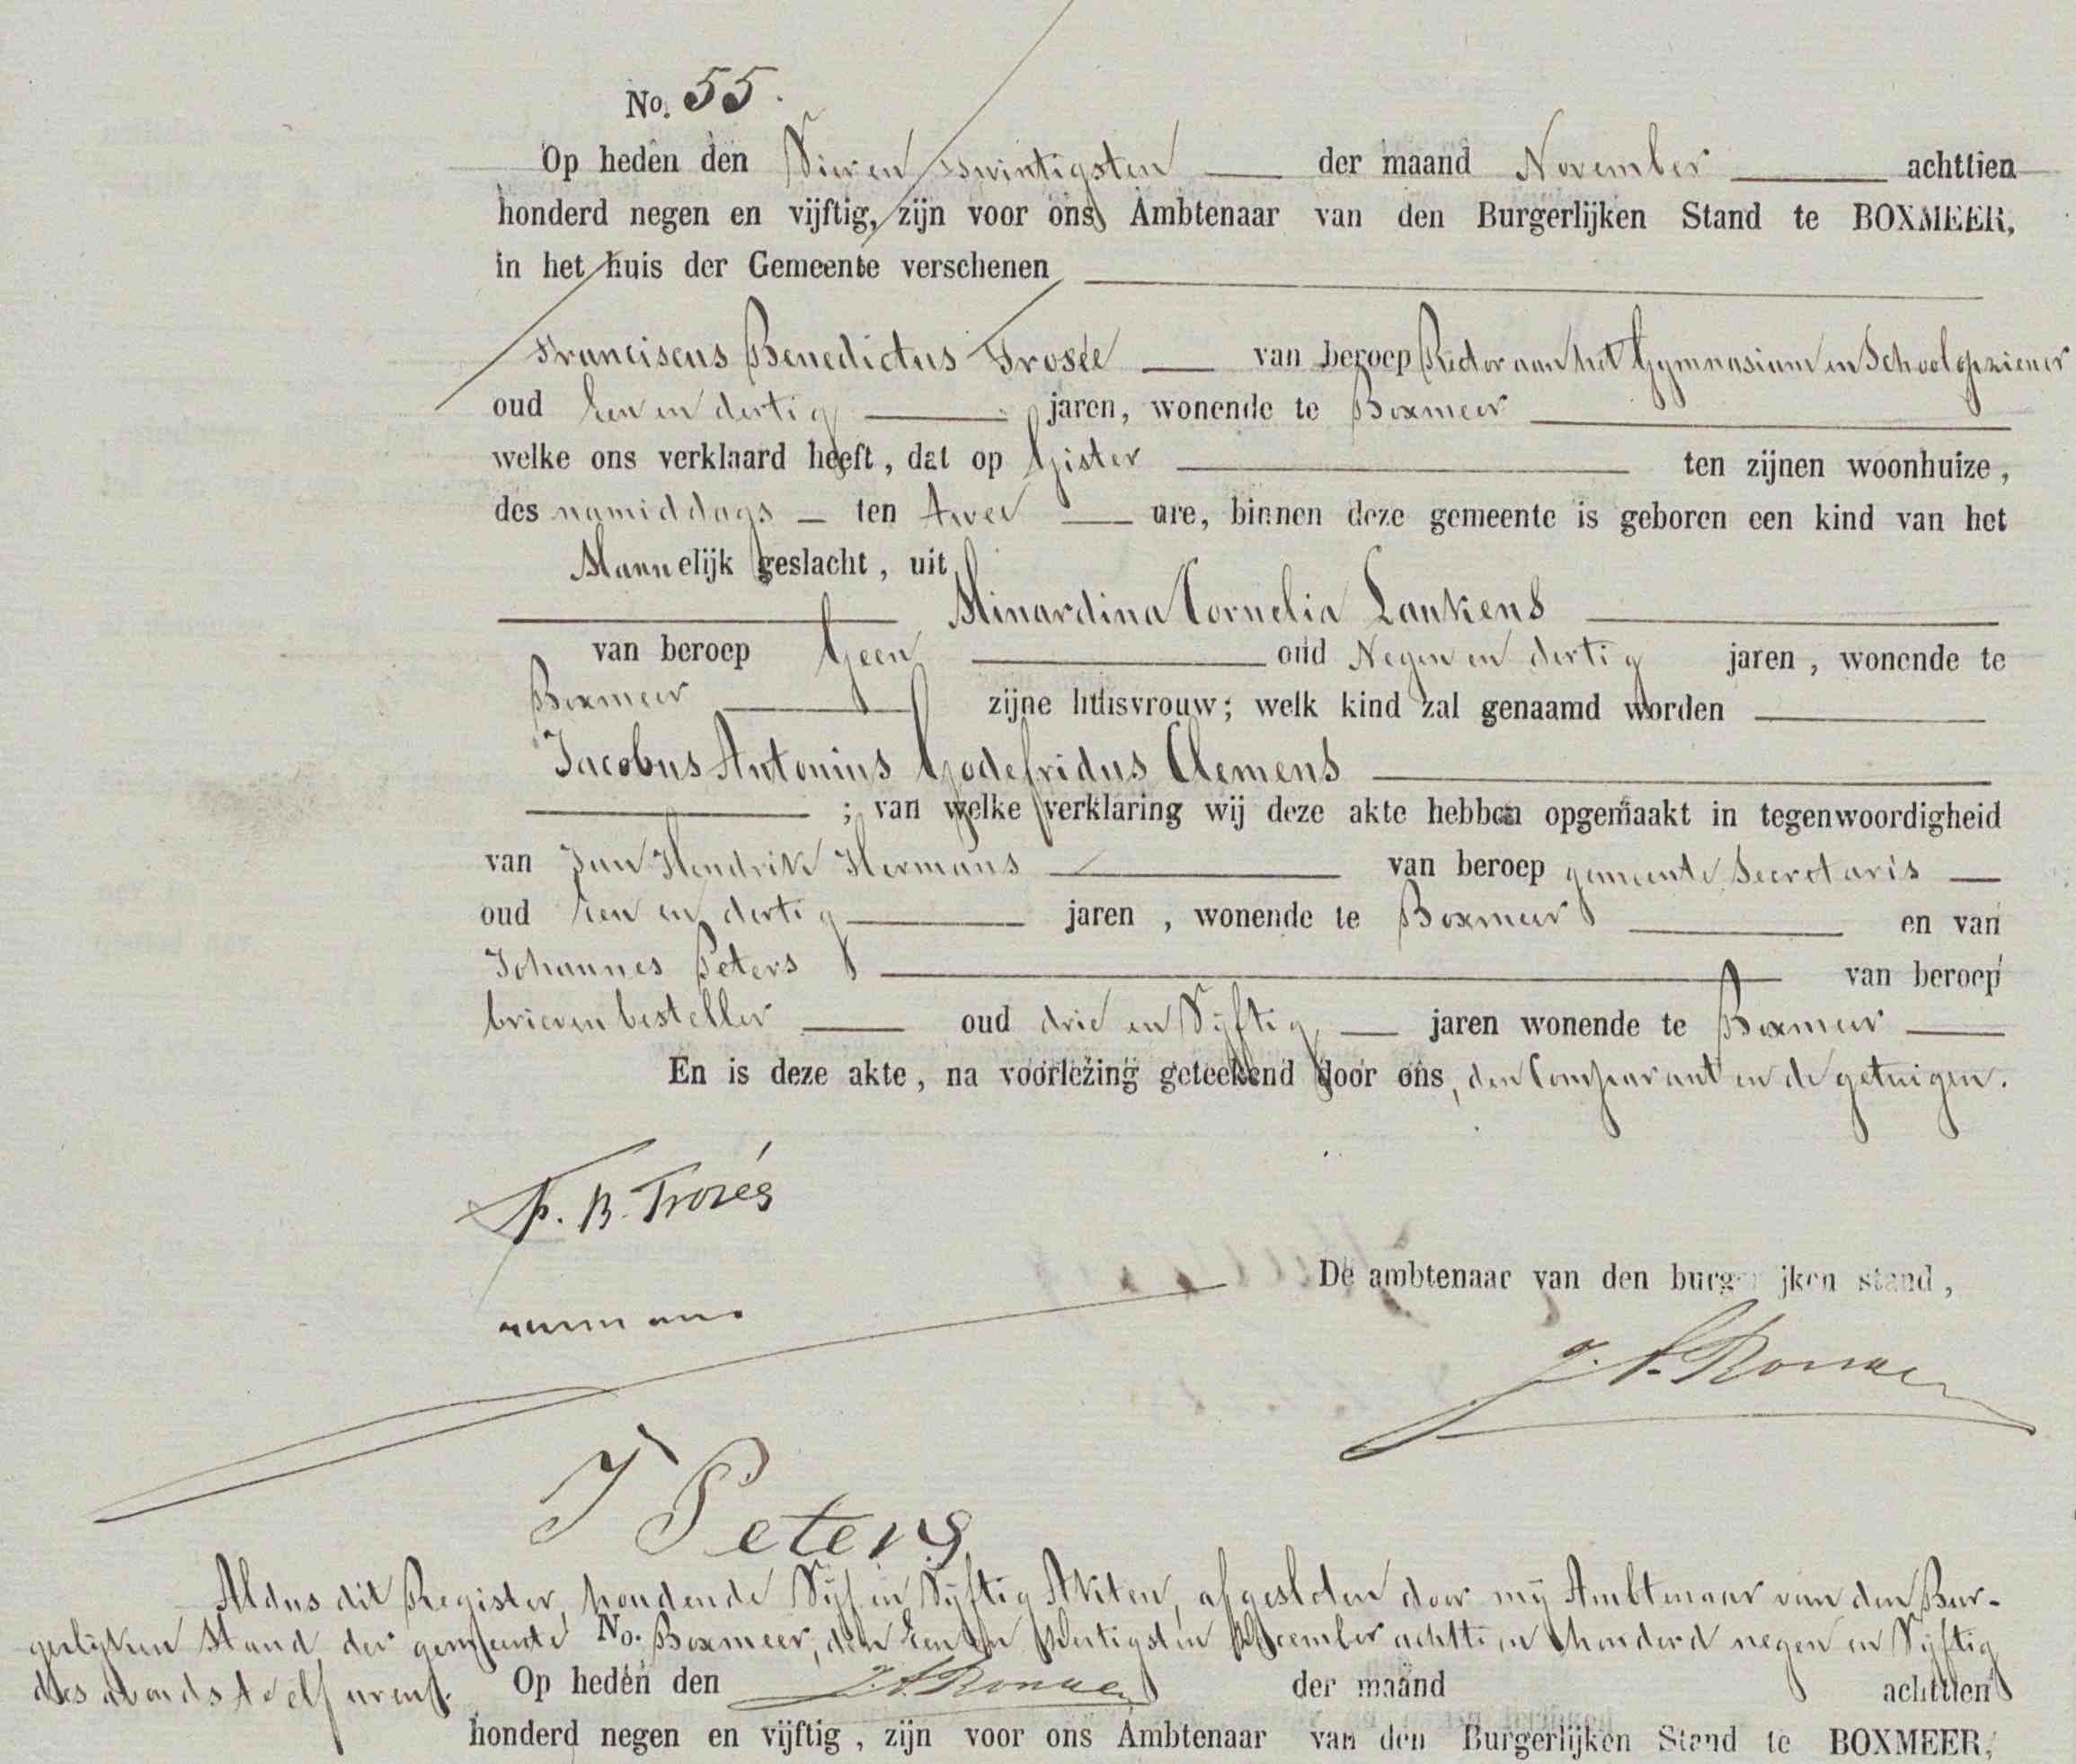 No. 55.
Op heden den Vier en twintigsten der maand November achttien
honderd negen en vijftig, zijn voor ons Ambtenaar van den Burgerlijken Stand te BOXMEER,
in het huis der Gemeente verschenen
Franciscus Benedictus Trosée van beroep Rector aan het Gymnasium en Schoolopziener
oud Een en dertig jaren, wonende te Boxmeer
welke ons verklaard heeft, dat op Gister ten zijnen woonhuize,
des namiddags ten twee ure, binnen deze gemeente is geboren een kind van het
Mannelijk geslacht, uit
Minardina Cornelia Lankens
van beroep Geen oud Negen en dertig jaren, wonende te
Boxmeer zijne huisvrouw; welk kind zal genaamd worden
Jacobus Antonius Godefridus Clemens
; van welke verklaring wij deze akte hebben opgemaakt in tegenwoordigheid
van Jan Hendrik Hermans van beroep gemeente Secretaris
oud Een en dertig jaren, wonende te Boxmeer en van
Johannes Peters van beroep
brievenbesteller oud drie en Vijftig jaren wonende te Boxmeer
En is deze akte, na voorlezing geteekend door ons, den Comparant en de getuigen.
F. B. Trosée
De ambtenaar van den burgerlijken stand,
J Peters
Aldus dit Register, houdende Vijf en Vijftig Akten, afgesloten door mij Ambtenaar van den Bur-
gerlijken Stand der gemeente No. Boxmeer, den Een en dertigsten December achttien honderd negen en Vijftig
des avonds twelf uren.
Op heden den der maand achttien
honderd negen en vijftig, zijn voor ons Ambtenaar van den Burgerlijken Stand te BOXMEER,